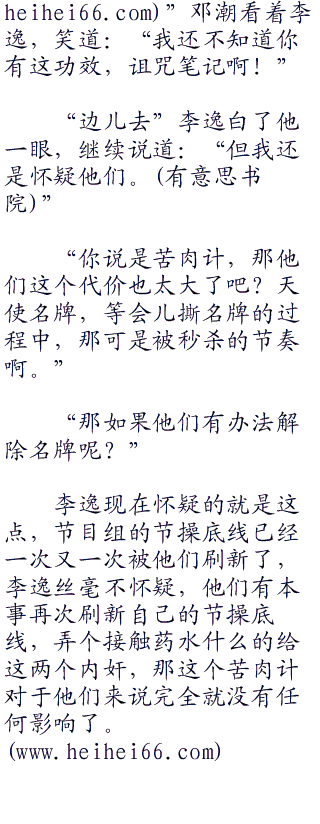 heihei66.com)”邓潮看着李
逸，笑道：“我还不知道你
有这功效，诅咒笔记啊！”
“边儿去”李逸白了他
一眼，继续说道：“但我还
是怀疑他们。(有意思书
院)”
“你说是苦肉计，那他
们这个代价也太大了吧？天
使名牌，等会儿撕名牌的过
程中，那可是被秒杀的节奏
啊。”
“那如果他们有办法解
除名牌呢？”
李逸现在怀疑的就是这
点，节目组的节操底线已经
一次又一次被他们刷新了，
李逸丝毫不怀疑，他们有本
事再次刷新自己的节操底
线，弄个接触药水什么的给
这两个内奸，那这个苦肉计
对于他们来说完全就没有任
何影响了。
(www.heihei66.com)